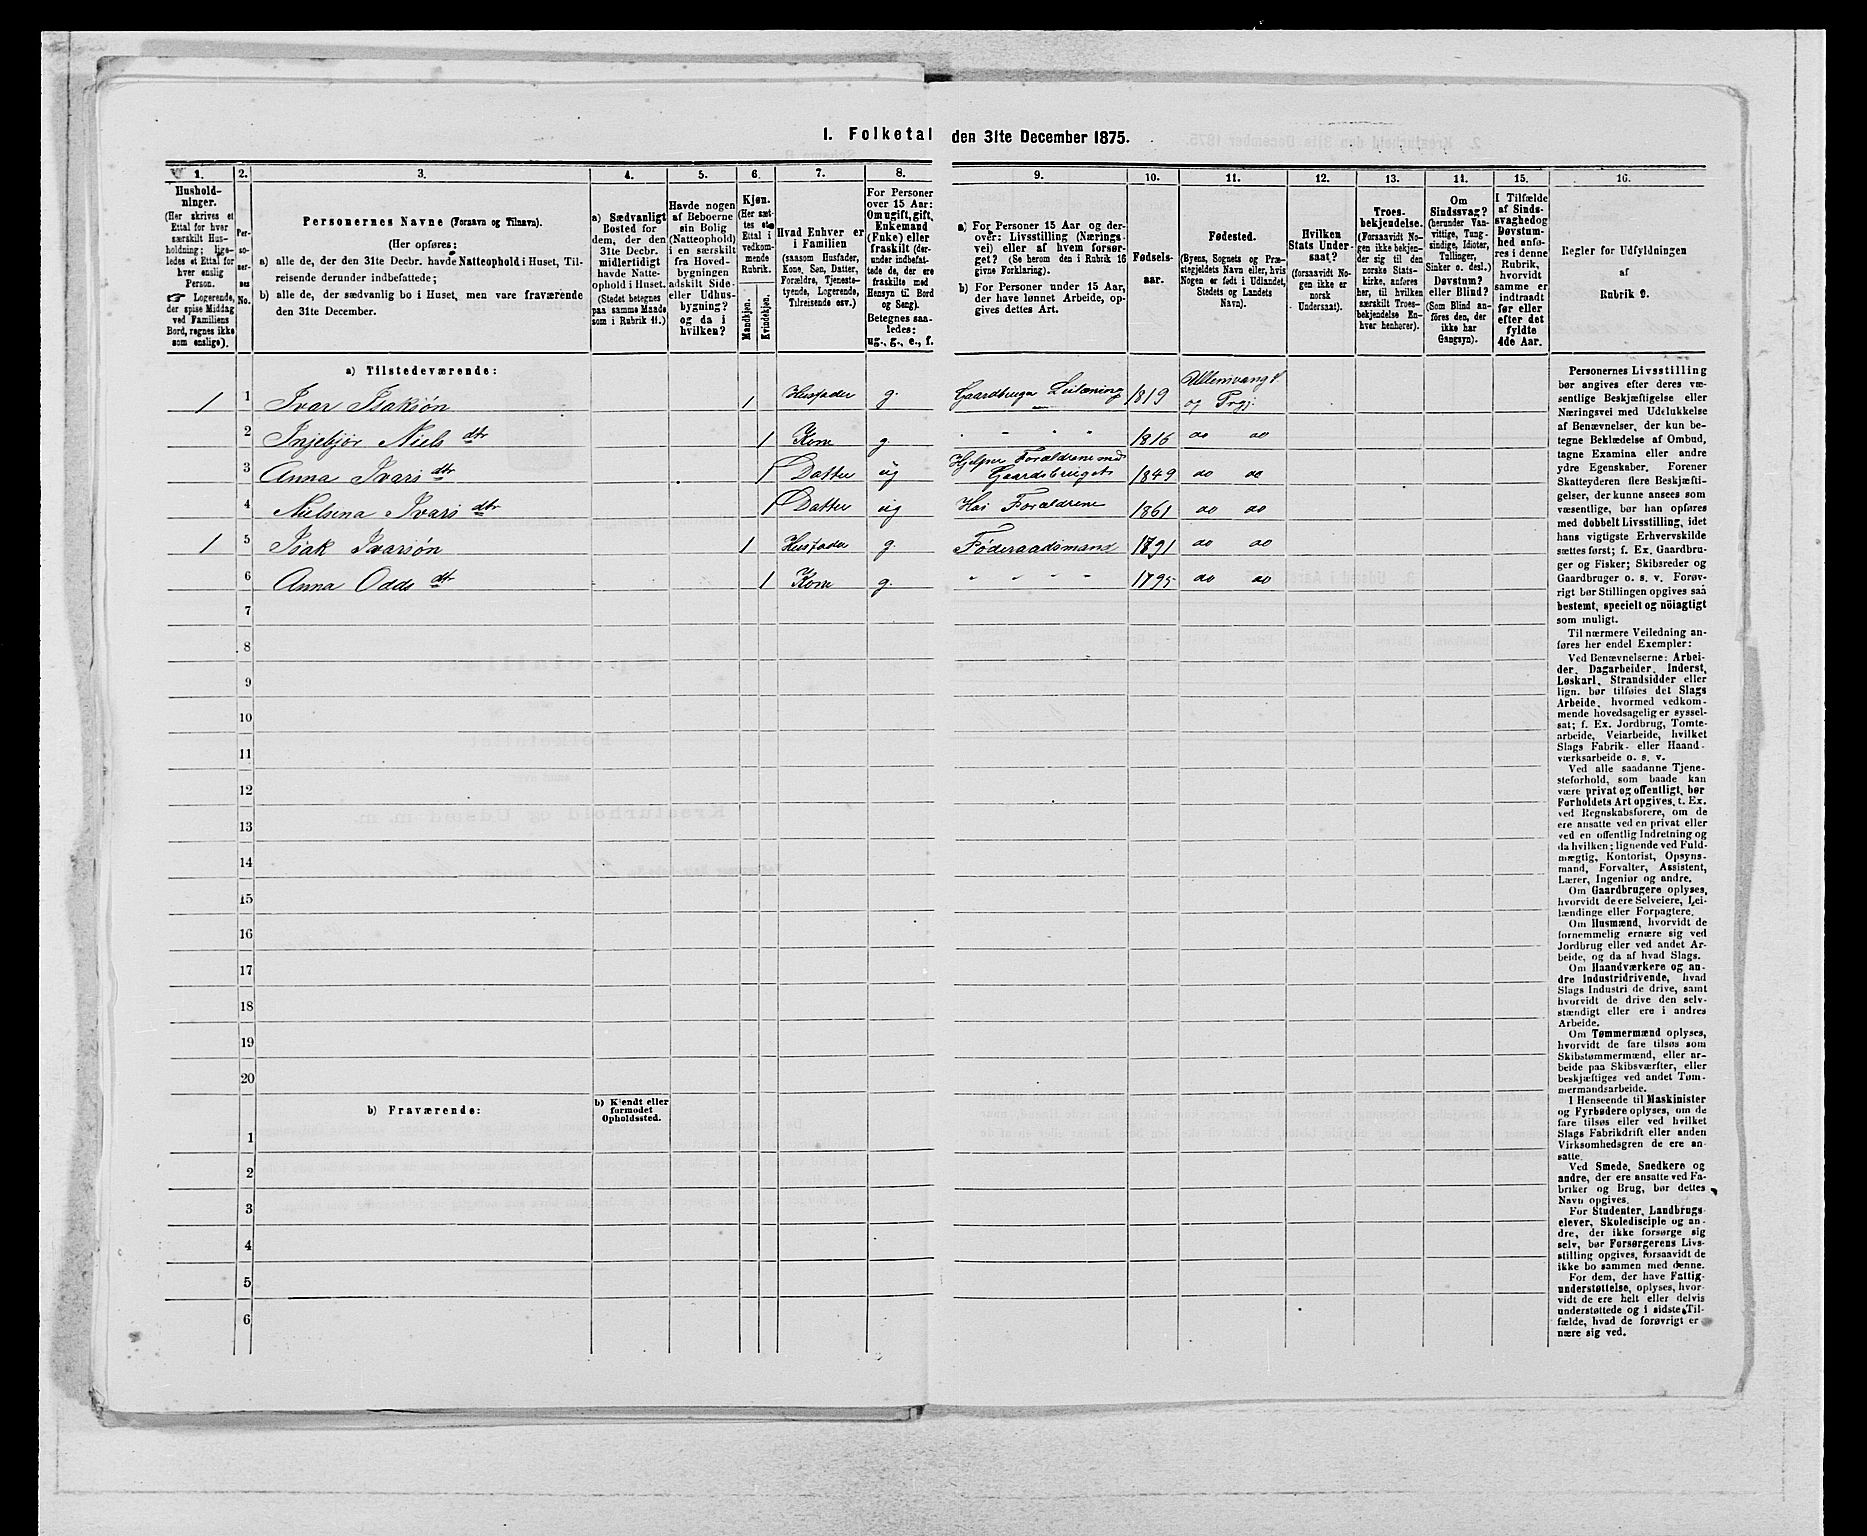 1. Folketal den 31te December 1875.
1. 2. 3. 4. 5. 6. 7. 8. 9. 10. 11. 12. 13. 14. 15. 16.
Hushold-
ninger.
(Her skrives et
Ettal for hver
særskilt Hus-
holdning; lige-
ledes et Ettal for
hver enslig
Person.
☞ Logerende,
der spise Middag
ved Familiens
Bord, regnes ikke
som enslige).
Per-
so-
ner-
nes
No.
Personernes Navne (Fornavn og Tilnavn).
(Her opføres:
a) alle de, der den 31te Decbr. havde Natteophold i Huset, Til-
reisende derunder indbefattede;
b) alle de, der sædvanlig bo i Huset, men vare fraværende
den 31te December.
a) Sædvanligt
Bosted for
dem, der den
31te Decbr.
midlertidigt
havde Natte-
ophold i Huset.
(Stedet betegnes
paa samme Maade
som i Rubrik 11.)
Havde nogen
af Beboerne
sin Bolig
(Natteophold)
i en særskilt
fra Hoved-
bygningen
adskilt Side-
eller Udhus-
bygning?
og da i
hvilken?
Kjøn.
(Her sæt-
tes et
Ettal i
vedkom-
mende
Rubrik.
Mandkjøn.
Kvindekjøn.
Hvad Enhver er
i Familien
(saasom Husfader,
Kone, Søn, Datter,
Forældre, Tjeneste-
tyende, Logerende,
Tilreisende osv.)
For Personer
over 15 Aar:
Om ugift, gift,
Enkemand
(Enke) eller
fraskilt (der-
under indbefat-
tede de, der ere
fraskilte med
Hensyn til Bord
og Seng).
Betegnes saa-
ledes:
ug., g., e., f.
a) For Personer 15 Aar og der-
over: Livsstilling (Nærings-
vei) eller af hvem forsør-
get? (Se herom den i Rubrik 16
givne Forklaring).
b) For Personer under 15 Aar,
der have lønnet Arbeide, op-
gives dettes Art.
Fødsels-
aar.
Fødested.
(Byens, Sognets og Præ-
stegjeldets Navn eller, hvis
Nogen er født i Udlandet,
Stedets og Landets
Navn).
Hvilken
Stats Under-
saat?
(forsaavidt No-
gen ikke er
norsk
Undersaat).
Troes-
bekjendelse.
(Forsaavidt No-
gen ikke bekjen-
der sig til den
norske Stats-
kirke, anføres
her, til hvilken
særskilt Troes-
bekjendelse En-
hver henhører).
Om
Sindssvag?
(herunder Van-
vittige, Tung-
sindige, Idioter,
Tullinger,
Sinker o. desl.)
Døvstum?
eller Blind?
(Som Blind an-
føres den, der
ikke har
Gangsyn).
I Tilfælde
af Sinds-
svaghed og
Døvstum-
hed anfø-
res i denne
Rubrik,
hvorvidt
samme er
indtraadt
før eller
efter det
fyldte
4de Aar.
Regler for Udfyldningen
af
Rubrik 9.
a) Tilstedeværende:
1 1 Ivar Isaksøn 1 Husfader g. Gaardbruger Leilænding 1819 Ullensvang S og Prgj.
2 Injebjør Niels dtr 1 Kone g " " " " 1816 do do
3 Anna Ivars dtr 1 Datter ug Hjelper Forældrene med Gaardsbruget 1849 do do
4 Nielsena Ivars dtr 1 Datter ug Hos Forældrene 1861 do do
1 5 Isak Ivarsøn 1 Husfader g. Føderaadsmand 1791 do do
6 Anna Odds dtr 1 Kone g. " " " " 1795 do do
7
8
9
10
11
12
13
14
15
16
17
18
19
20
b) Fraværende:
b) Kjendt eller
formodet
Opholdssted.
1
2
3
4
5
6
Personernes Livsstilling
bør angives efter deres væ-
sentlige Beskjæftigelse eller
Næringsvei med Udelukkelse
af Benævnelser, der kun be-
tegne Beklædelse af Ombud,
tagne Examina eller andre
ydre Egenskaber. Forener
Skatteyderen flere Beskjæfti-
gelser, der kunne ansees som
væsentlige, bør han opføres
med dobbelt Livsstilling, idet
hans vigtigste Erhvervskilde
sættes først; f. Ex. Gaardbru-
ger og Fisker; Skibsreder og
Gaardbruger o. s. v. Forøv-
rigt bør Stillingen opgives saa
bestemt, specielt og nöiagtigt
som muligt.
Til nærmere Veiledning an-
føres her endel Exempler:
Ved Benævnelserne: Arbei-
der, Dagarbeider, Inderst,
Løskarl, Strandsidder eller
lign. bør tilføies det Slags
Arbeide, hvormed vedkom-
mende hovedsagelig er syssel-
sat; f. Ex. Jordbrug, Tomte-
arbeide, Veiarbeide, hvilket
Slags Fabrik- eller Haand-
værksarbeide o. s. v.
Ved alle saadanne Tjene-
steforhold, som baade kan
være privat og offentligt, bør
Forholdets Art opgives, t. Ex.
ved Regnskabsførere, om de
ere ansatte ved en privat eller
ved en offentlig Indretning og
da hvilken; lignende ved Fuld-
mægtig, Kontorist, Opsyns-
mand, Forvalter, Assistent,
Lærer, Ingeniør og andre.
Om Gaardbrugere oplyses,
hvorvidt de ere Selveiere, Lei-
lændinge eller Forpagtere.
Om Husmænd, hvorvidt de
fornemmelig ernære sig ved
Jordbrug eller ved andet Ar-
beide, og da af hvad Slags.
Om Haandværkere og an-
dre Industridrivende, hvad
Slags Industri de drive, samt
hvorvidt de drive den selv-
stændigt eller ere i andres
Arbeide.
Om Tømmermænd oplyses,
hvorvidt de fare tilsøs som
Skibstømmermænd, eller ar-
beide paa Skibsværfter, eller
beskjæftiges ved andet Tøm-
mermandsarbeide.
I Henseende til Maskinister
og Fyrbødere oplyses, om de
fare tilsøs eller ved hvilket
Slags Fabrikdrift eller anden
Virksomhedsgren de ere an-
satte.
Ved Smede, Snedkere og
andre, der ere ansatte ved Fa-
briker og Brug, bør dettes
Navn opgives.
For Studenter, Landbrugs-
elever, Skoledisciple og an-
dre, der ikke forsørge sig
selv, bør Forsørgerens Livs-
stilling opgives, forsaavidt de
ikke bo sammen med denne.
For dem, der have Fattig-
understøttelse, oplyses, hvor-
vidt de ere helt eller delvis
understøttede og i sidste Til-
fælde, hvad de forøvrigt er-
nære sig ved.